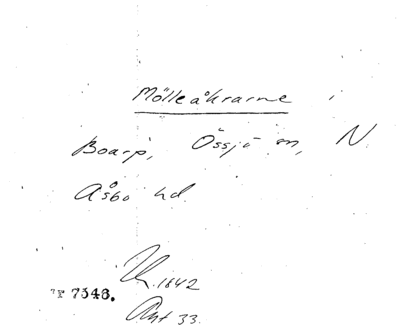 Mölleåkrarne i
Boarp, Össjö sn, N.
Åsbo hd.
1842
7348.
Akt 33.